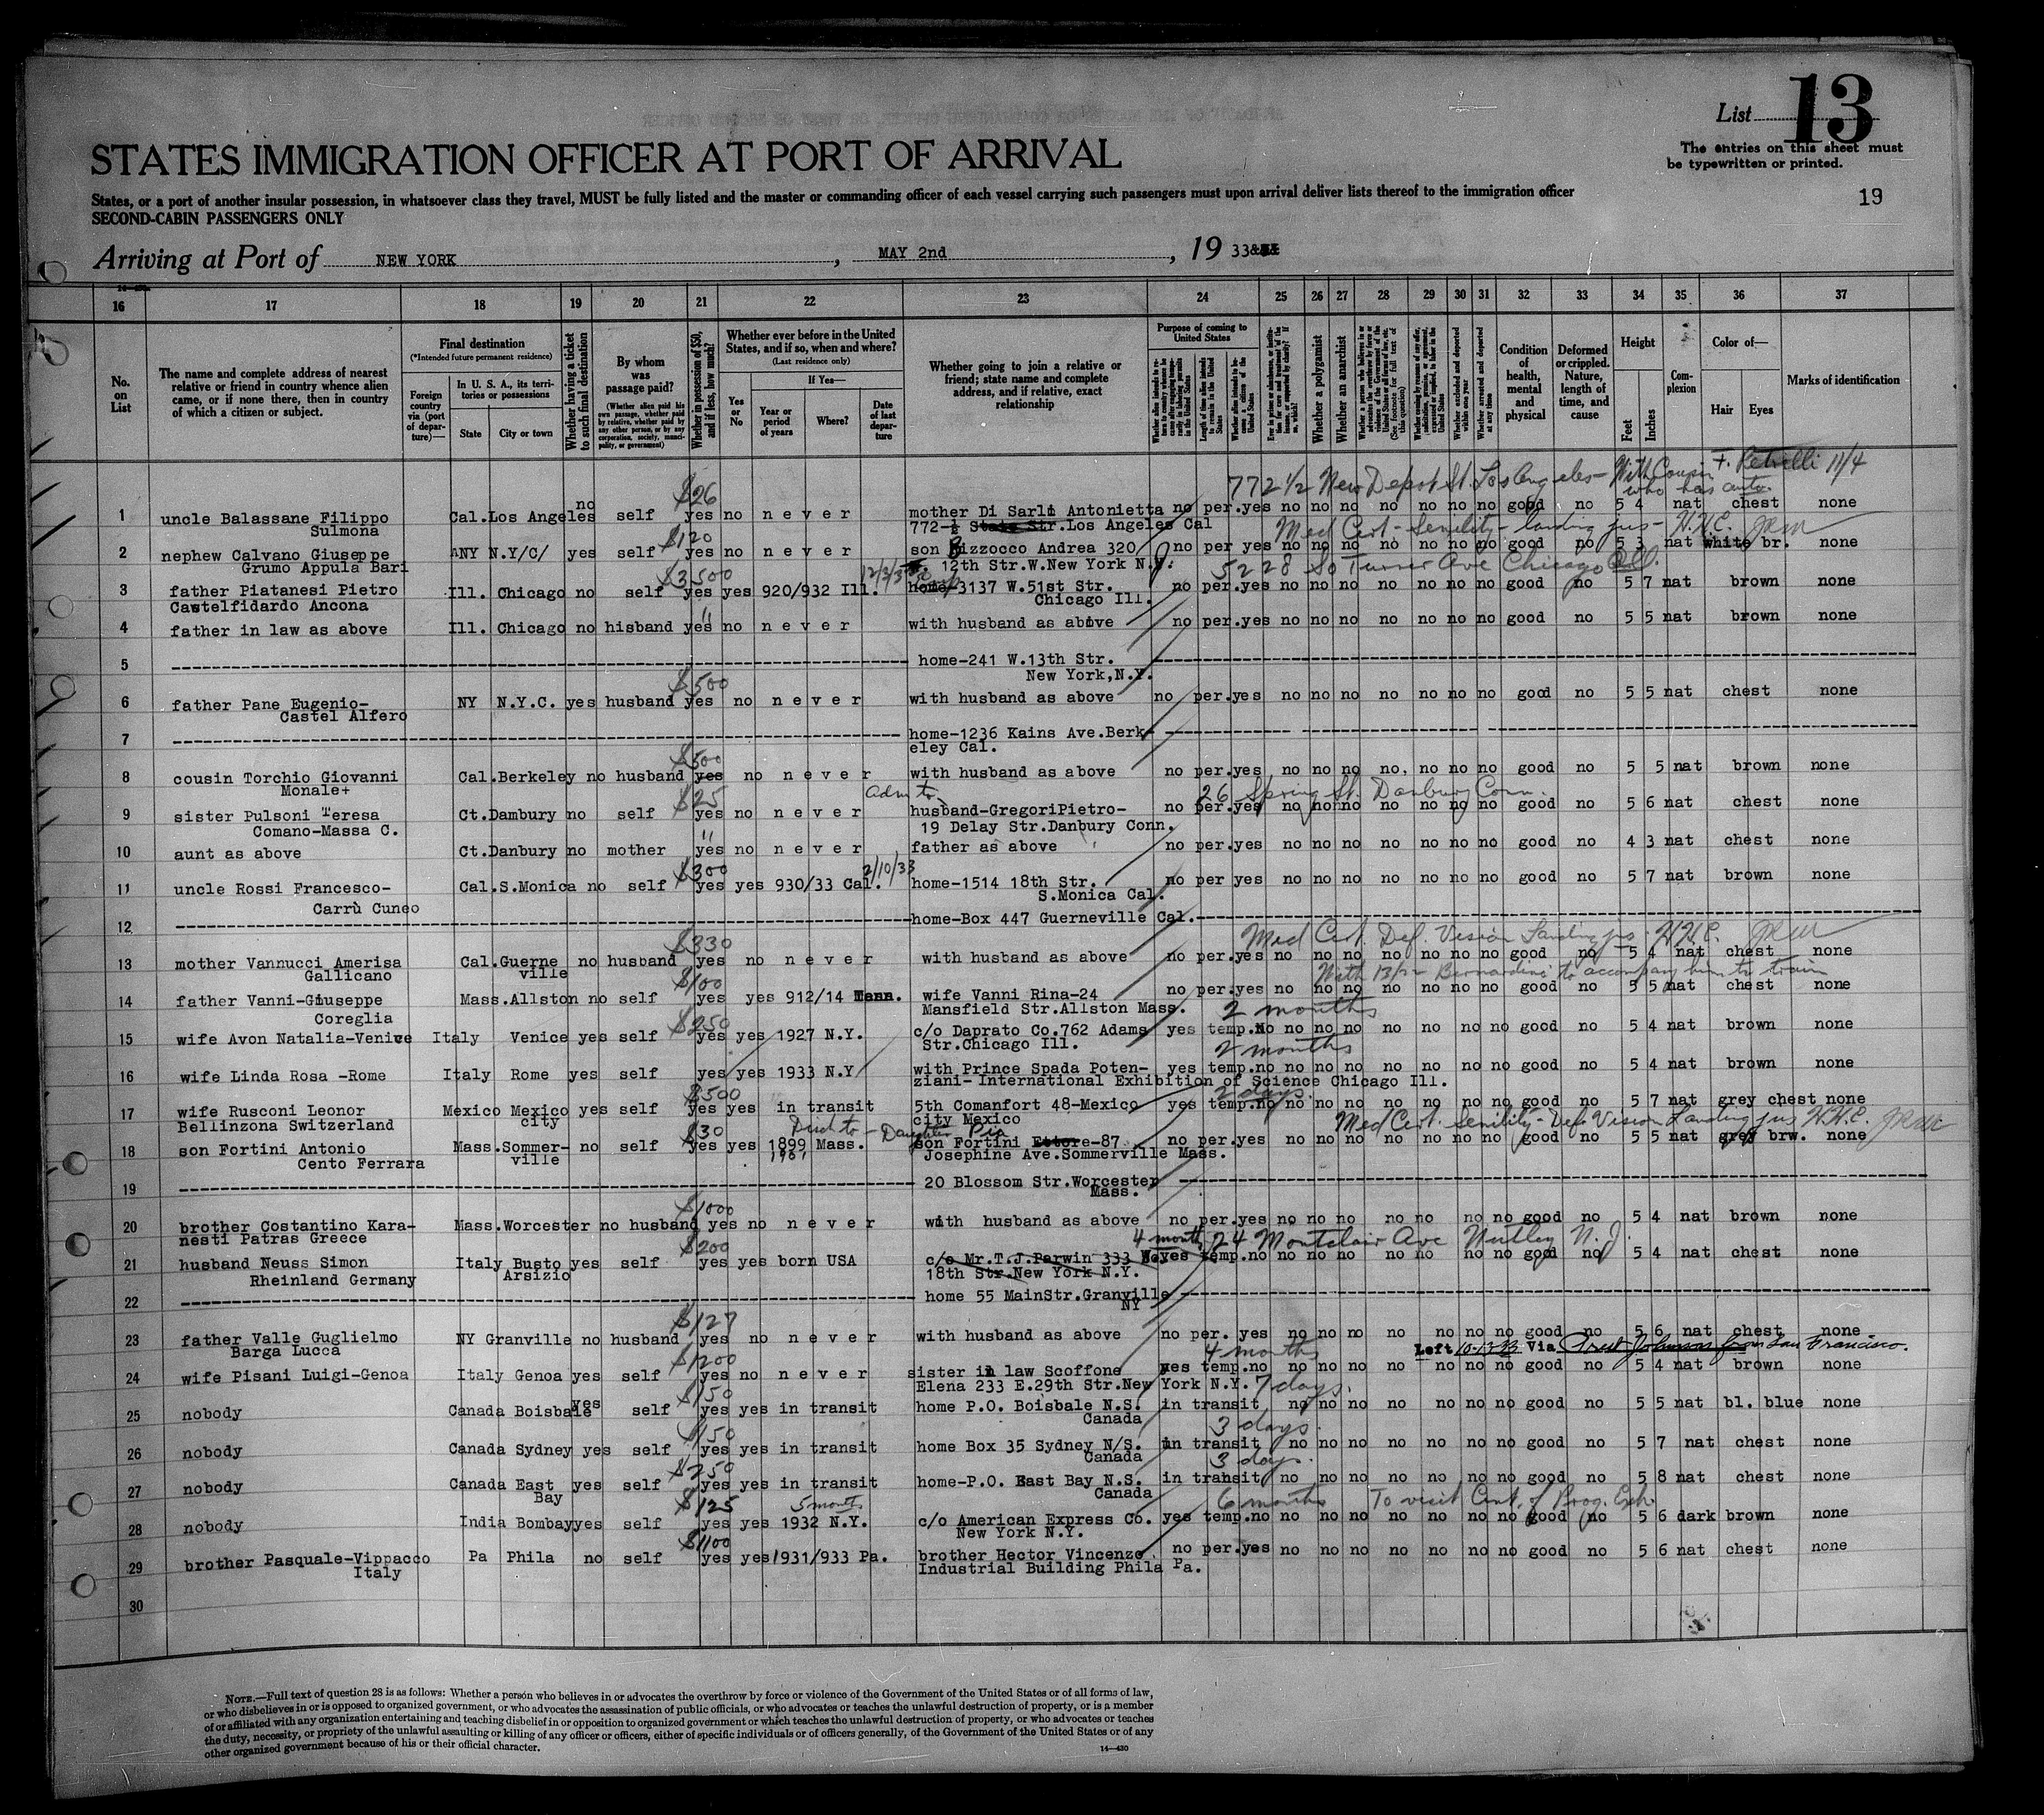 List 13
The entries on this sheet must
be typewritten or printed.
STATES IMMIGRATION OFFICER AT PORT OF ARRIVAL
19
States, or a port of another insular possession, in whatsoever class they travel, MUST be fully listed and the master or commanding officer of each vessel carrying such passengers must upon arrival deliver lists thereof to the immigration officer
SECOND-CABIN PASSENGERS ONLY
Arriving at Port of NEW YORK , MAY 2nd , 19 33
16 17 18 19 20 21 22 23 24 25 26 27 28 29 30 31 32 33 34 35 36 37
No. on List
The name and complete address of nearest relative or friend in country whence alien came, or if none there, then in country of which a citizen or subject.
Final destination
(*Intended future permanent residence)
Foreign country via (port of departure)—
In U. S. A., its territories or possessions
State
City or town
Whether having a ticket to such final destination
By whom was passage paid?
(Whether alien paid his own passage, whether paid by relative, whether paid by any other person, or by any corporation, society, municipality, or government)
Whether in possession of $50, and if less, how much?
Whether ever before in the United States, and if so, when and where?
(Last residence only)
Yes or No
If Yes—
Year or period of years
Where?
Date of last departure
Whether going to join a relative or friend; state name and complete address, and if relative, exact relationship
Purpose of coming to United States
Whether a polygamist
Whether an anarchist
Condition of health, mental and physical
Deformed or crippled. Nature, length of time, and cause
Height
Feet
Inches
Complexion
Color of—
Hair
Eyes
Marks of identification
772 1/2 New Depot St. Los Angeles - With Cousin F. Petrelli 11/4
who has auto
$26
1 uncle Balassane Filippo Cal.Los Angeles no self yes no never mother Di Sarli Antonietta no per.yes no no no no no no no good no 5 4 nat chest none
Sulmona 772-½ State Str.Los Angeles Cal
Med Cert - Senility - landing jus - H.H.C. JRM
$120
2 nephew Calvano Giuseppe NY N.Y/C/ yes self yes no never son Bizzocco Andrea 320 no per yes no no no no no no no good no 5 3 nat white br. none
Grumo Appula Bari 12th Str.W.New York N.Y.
5228 So Turner Ave Chicago Ill.
$3500
3 father Piatanesi Pietro Ill. Chicago no self yes yes 920/932 Ill. home-3137 W.51st Str. no per.yes no no no no no no no good no 5 7 nat brown none
Castelfidardo Ancona Chicago Ill.
"
4 father in law as above Ill. Chicago no hisband yes no never with husband as above no per.yes no no no no no no no good no 5 5 nat brown none
5 home-241 W.13th Str.
New York,N.Y.
$500
6 father Pane Eugenio- NY N.Y.C. yes husband yes no never with husband as above no per.yes no no no no no no no good no 5 5 nat chest none
Castel Alfero
7 home-1236 Kains Ave.Berk-
eley Cal.
$500
8 cousin Torchio Giovanni Cal.Berkeley no husband yes no never with husband as above no per.yes no no no no. no no no good no 5 5 nat brown none
Monale+
$25 adm to 26 Spring St. Danbury Conn.
9 sister Pulsoni Teresa Ct.Dambury no self yes no never husband-GregoriPietro- no per.yes no no no no no no no good no 5 6 nat chest none
Comano-Massa C. 19 Delay Str.Danbury Conn.
"
10 aunt as above Ct.Danbury no mother yes no never father as above no per.yes no no no no no no no good no 4 3 nat chest none
$300 2/10/33
11 uncle Rossi Francesco- Cal.S.Monica no self yes yes 930/33 Cal. home-1514 18th Str. no per yes no no no no no no no good no 5 7 nat brown none
Carrù Cuneo S.Monica Cal.
12 home-Box 447 Guerneville Cal.
Med Cert. Def. Vision Landing jus - H.H.C. JRM
$330
13 mother Vannucci Amerisa Cal.Guerne no husband yes no never with husband as above no per.yes no no no no no no no good no 5 4 nat chest none
Gallicano ville
With 13/12 Bernardino to accompany him to train
$100
14 father Vanni-Giuseppe Mass.Allston no self yes yes 912/14 wife Vanni Rina-24 no per.yes no no no no no no no good no 5 5 nat chest none
Coreglia Mansfield Str.Allston Mass.
$250 2 months
15 wife Avon Natalia-Venice Italy Venice yes self yes yes 1927 N.Y. c/o Daprato Co.762 Adams yes temp.no no no no no no no no good no 5 4 nat brown none
Str.Chicago Ill.
2 months
16 wife Linda Rosa -Rome Italy Rome yes self yes yes 1933 N.Y with Prince Spada Poten- yes temp.no no no no no no no no good no 5 4 nat brown none
ziani- International Exhibition of Science Chicago Ill.
$500 2 days.
17 wife Rusconi Leonor Mexico Mexico yes self yes yes in transit 5th Comanfort 48-Mexico yes temp.no no no no no no no no good no 5 7 nat grey chest none
Bellinzona Switzerland city city Mexico
Med Cert. Senility - Def. Vision Landing jus H.H.C. JRM
$30 Disch to - Daughter Pia
18 son Fortini Antonio Mass.Sommer- no self yes yes 1899 Mass. son Fortini Ettore-87 no per.yes no no no no no no no good no 5 5 nat grey brw. none
Cento Ferrara ville 1901 Josephine Ave.Sommerville Mass.
19 20 Blossom Str.Worcester
Mass.
$1000
20 brother Costantino Kara- Mass.Worcester no husband yes no never with husband as above no per.yes no no no no no no no good no 5 4 nat brown none
nesti Patras Greece
$200 4 month 24 Montclair Ave Nutley N.J.
21 husband Neuss Simon Italy Busto yes self yes yes born USA c/o Mr.T.J.Parwin 333 yes temp.no no no no no no no no good no 5 4 nat chest none
Rheinland Germany Arsizio 18th Str.New York N.Y.
22 home 55 MainStr.Granville
NY
$127
23 father Valle Guglielmo NY Granville no husband yes no never with husband as above no per. yes no no no no no no no good no 5 6 nat chest none
Barga Lucca
$1200 4 months Left 10-13-33 Via Pres Johnson from San Francisco.
24 wife Pisani Luigi-Genoa Italy Genoa yes self yes no never sister in law Scoffone yes temp.no no no no no no no no good no 5 4 nat brown none
Elena 233 E.29th Str.New York N.Y.
$150 7 days.
25 nobody Canada Boisbale yes self yes yes in transit home P.O. Boisbale N.S. in transit no no no no no no good no 5 5 nat bl. blue none
Canada
$150 3 days.
26 nobody Canada Sydney yes self yes yes in transit home Box 35 Sydney N/S. in transit no no no no no no no good no 5 7 nat chest none
Canada
$250 3 days.
27 nobody Canada East yes self yes yes in transit home-P.O. East Bay N.S. in transit no no no no no no no good no 5 8 nat chest none
Bay Canada
$125 5 month 6 months To visit Cent. of Prog. Exh.
28 nobody India Bombay yes self yes yes 1932 N.Y. c/o American Express Co. yes temp.no no no no no no no no good no 5 6 dark brown none
New York N.Y.
$1100
29 brother Pasquale-Vippacco Pa Phila no self yes yes 1931/933 Pa. brother Hector Vincenzo no per.yes no no no no no no no good no 5 6 nat chest none
Italy Industrial Building Phila Pa.
30
NOTE.—Full text of question 28 is as follows: Whether a person who believes in or advocates the overthrow by force or violence of the Government of the United States or of all forms of law,
or who disbelieves in or is opposed to organized government, or who advocates the assassination of public officials, or who advocates or teaches the unlawful destruction of property, or is a member
of or affiliated with any organization entertaining and teaching disbelief in or opposition to organized government or which teaches the unlawful destruction of property, or who advocates or teaches
the duty, necessity, or propriety of the unlawful assaulting or killing of any officer or officers, either of specific individuals or of officers generally, of the Government of the United States or of any
other organized government because of his or their official character.
14—430